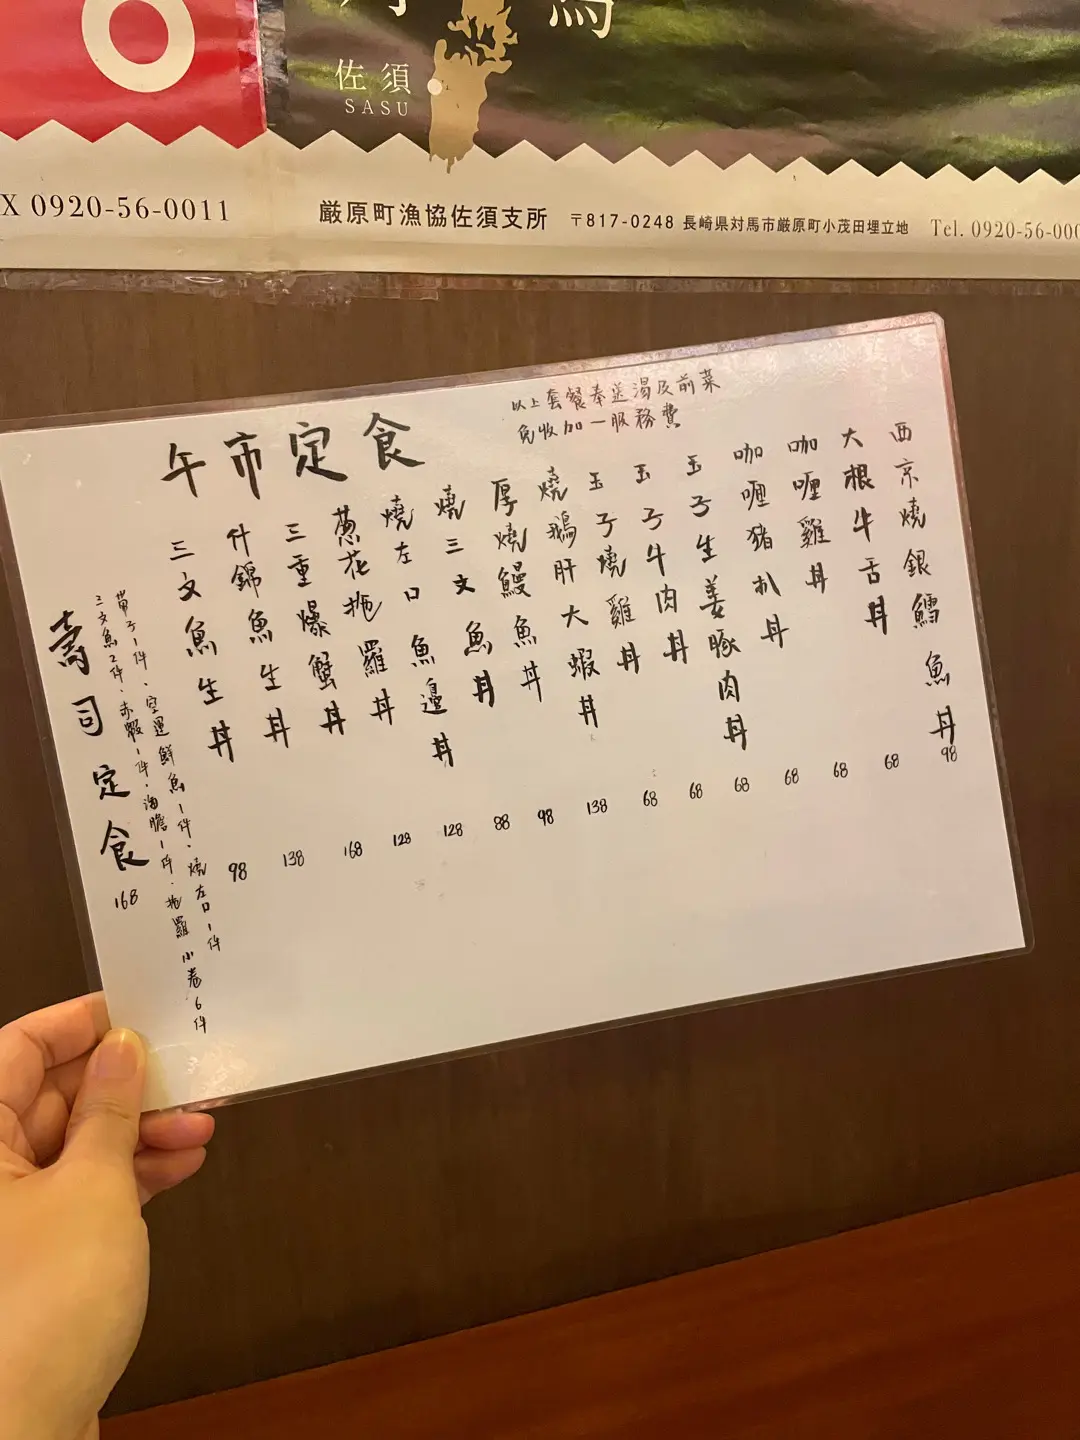 佐須
SASU
X 0920-56-0011
厳原町漁協佐須支所
〒817-0248 長崎県対馬市厳原町小茂田埋立地
Tel. 0920-56-000
午市定食
以上套餐奉送湯及前菜
免收加一服務費
壽司定食 168
帶子1件、空運鮮魚1件、燒左口1件
三文魚2件、赤蝦1件、海膽1件、拖羅小卷6件
三文魚生丼 98
什錦魚生丼 138
三重爆蟹丼 168
葱花拖羅丼 128
燒左口魚邊丼 128
燒三文魚丼 88
厚燒鰻魚丼 98
燒鵝肝大蝦丼 138
玉子燒雞丼 68
玉子牛肉丼 68
玉子生姜豚肉丼 68
咖喱猪扒丼 68
咖喱雞丼 68
大根牛舌丼 68
西京燒銀鱈魚丼 98